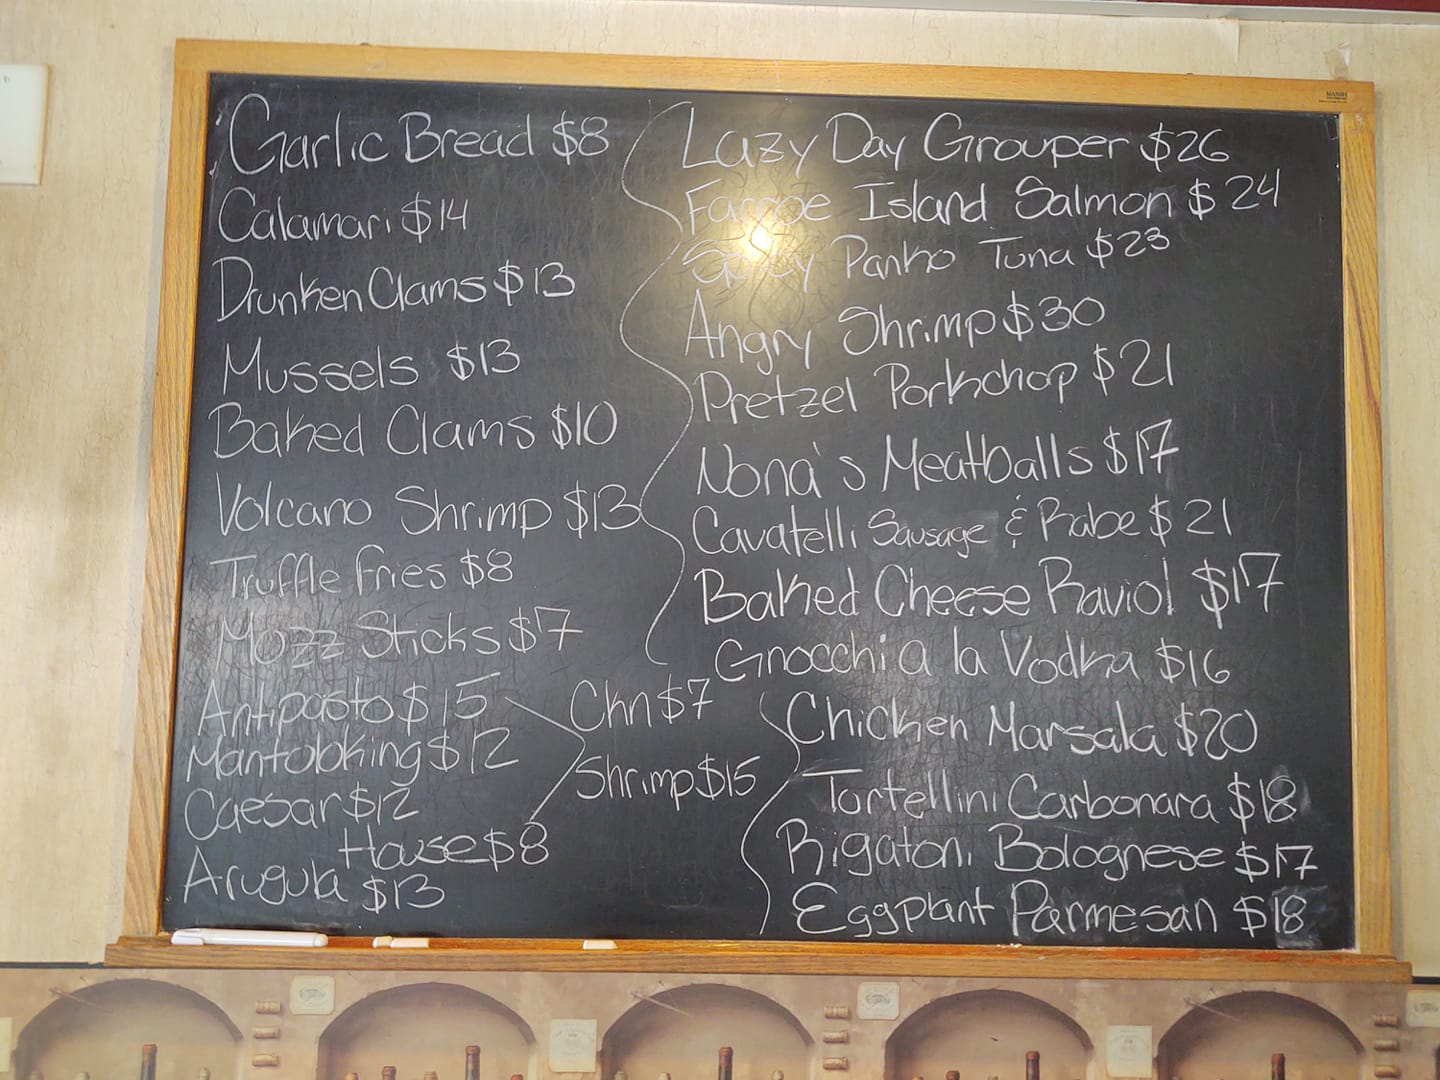 Garlic Bread $8
Calamari $14
Drunken Clams $13
Mussels $13
Baked Clams $10
Volcano Shrimp $13
Truffle Fries $8
Mozz Sticks $7
Antipasto $15
Mantoloking $12
Caesar $12
House $8
Arugula $13
Chn $7
Shrimp $15
Lazy Day Grouper $26
Faroe Island Salmon $24
Spicy Panko Tuna $23
Angry Shrimp $30
Pretzel Porkchop $21
Nona's Meatballs $17
Cavatelli Sausage & Rabe $21
Baked Cheese Raviol $17
Gnocchi a la Vodka $16
Chicken Marsala $20
Tortellini Carbonara $18
Rigatoni Bolognese $17
Eggplant Parmesan $18